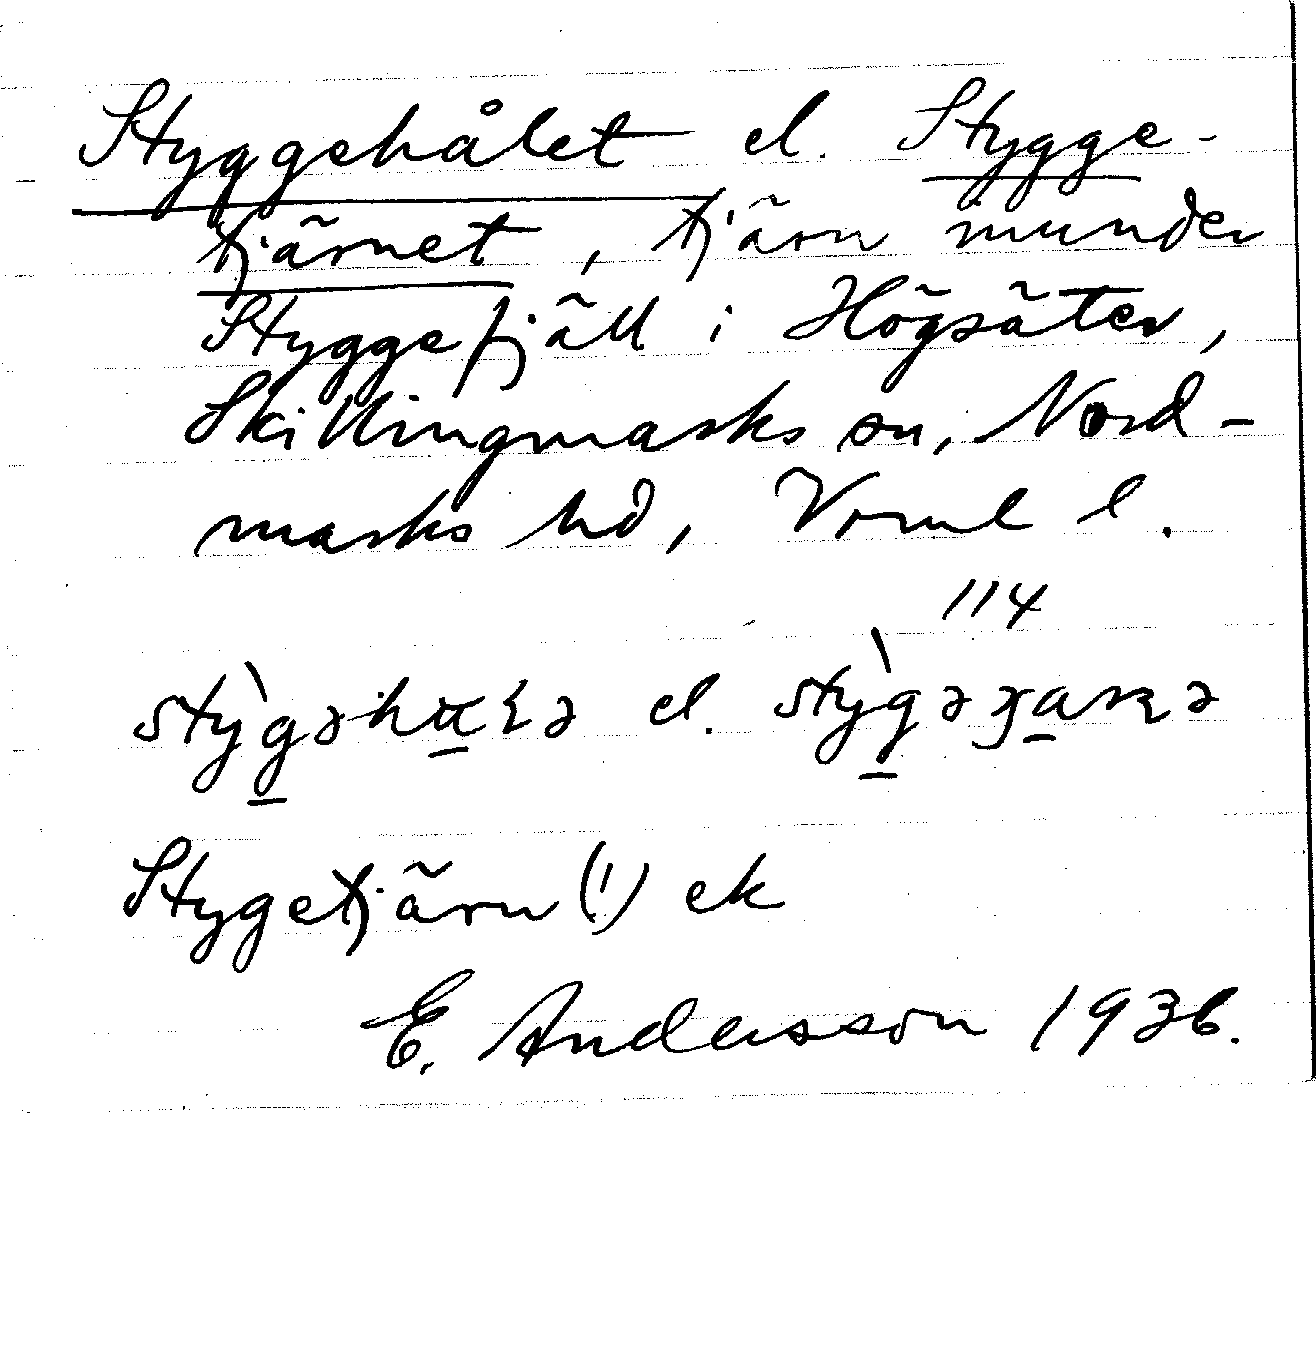 Styggehålet el. Stygge-
tjärnet, tjärn inunder
Styggefjäll i Högsäter,
Skillingmarks sn, Nord-
marks hd, Vrml l.
114
el.
Stygetjärn (!) ek
E. Andersson 1936.